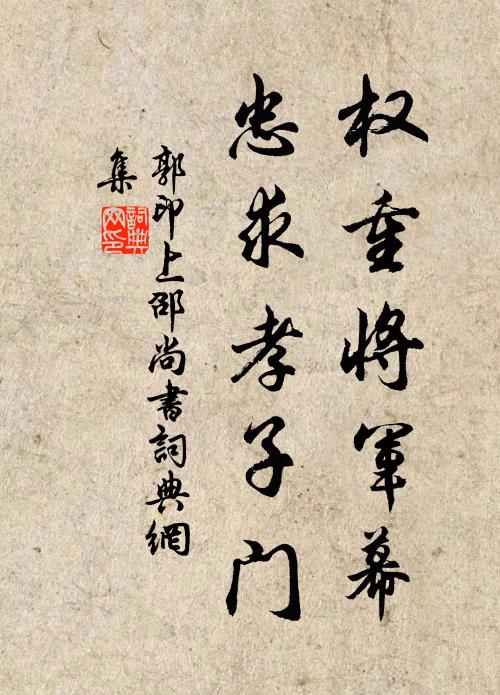 权重将军幕
忠求孝子门
郭印上邵尚書詞典網
集
詞典
网印